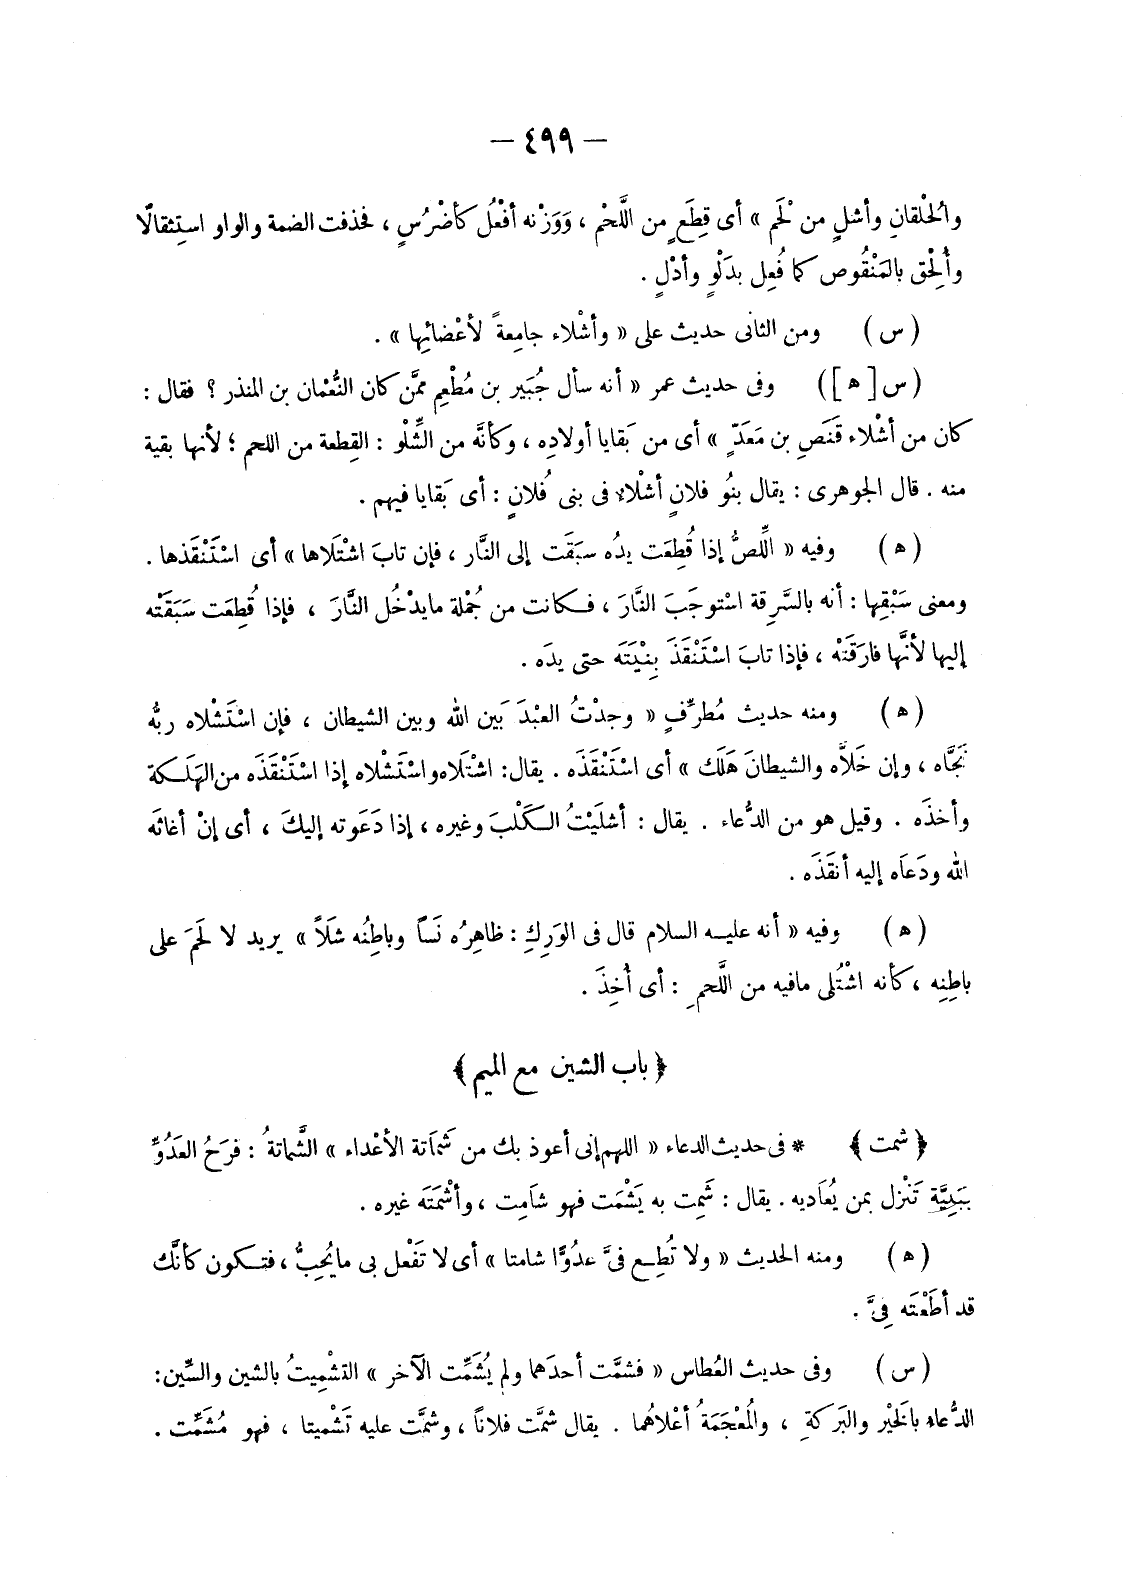 — ٤٩٩ —
والحُلْقانِ وأشلٍ من لَحْم » أى قِطَعٍ من اللَّحْم ، وَوَزْنه أفْعُل كأضْرُسٍ ، فحذفت الضمة والواو استِثقالًا
وأُلحِق بالمَنْقُوص كما فُعِل بدَلْوٍ وأدْلٍ .
( س ) ومن الثانى حديث على « وأشْلاء جامِعةً لأعْضائِها » .
( س [ ه ] ) وفى حديث عمر « أنه سأل جُبَير بن مُطْعِم ممَّن كان النُّعْمان بن المنذر ؟ فقال :
كان من أشْلاء قَنَصِ بن مَعَدّ » أى من بَقايا أولادِه ، وكأنَّه من الشِّلْو : القِطعة من اللحم ؛ لأنها بقية
منه . قال الجوهرى : يقال بنُو فلانٍ أشْلاء فى بنى فُلانٍ : أى بَقايا فيهم .
( ه ) وفيه « اللِّصُّ إذا قُطِعَت يدُه سبَقَت إلى النَّار ، فإن تابَ اشْتَلاها » أى اسْتَنْقَذها .
ومعنى سَبْقِها : أنه بالسَّرِقة اسْتوجَبَ النارَ ، فكانت من جُمْلة مايدْخُل النَّارَ ، فإذا قُطِعَت سَبَقَتْه
إليها لأنَّها فارَقَتْه ، فإذا تابَ اسْتَنْقَذَ بِنْيَتَه حتى يدَه .
( ه ) ومنه حديث مُطرِّفٍ « وجدْتُ العبْدَ بَين الله وبين الشيطان ، فإن اسْتَشْلاه ربُّه
نَجَّاه ، وإن خَلاَّه والشيطانَ هَلَك » أى اسْتَنْقَذَه . يقال : اشْتَلاه واسْتَشْلاه إذا اسْتَنْقَذَه من الهَلَكة
وأخذَه . وقيل هو من الدُّعاء . يقال : أشلَيْتُ الكَلْبَ وغيره ، إذا دَعَوته إليكَ ، أى إنْ أغاثَه
الله ودَعَاه إليه أنقَذَه .
( ه ) وفيه « أنه عليه السلام قال فى الوَرِكِ : ظاهِرُه نَسًا وباطِنُه شَلاً » يريد لا لَحْمَ على
باطِنِه ، كأنه اشْتُلى مافيه من اللَّحمِ : أى أُخِذَ .
﴿ باب الشين مع الميم ﴾
﴿ شمت ﴾ * فى حديث الدعاء « اللهم إنى أعوذ بك من شَمَاتة الأعْداء » الشَّماتةُ : فرَحُ العَدُوِّ
ببَليَّة تَنْزل بمن يُعَاديه . يقال : شَمِت به يَشْمَت فهو شامِت ، وأشْمَتَه غيره .
( ه ) ومنه الحديث « ولا تُطِع فىَّ عدُوًّا شامتا » أى لا تَفْعل بى مايُحِبُّ ، فتكون كأنَّك
قد أطَعْتَه فِىَّ .
( س ) وفى حديث العُطاس « فشمَّت أحدَهما ولم يُشَمِّت الآخر » التشْمِيتُ بالشين والسِّين :
الدُّعاء بالخَيْر والبَركةِ ، والمُعْجَمَةُ أعْلاهُما . يقال شمَّت فلاناً ، وشمَّت عليه تَشْميتا ، فهو مُشَمِّت .